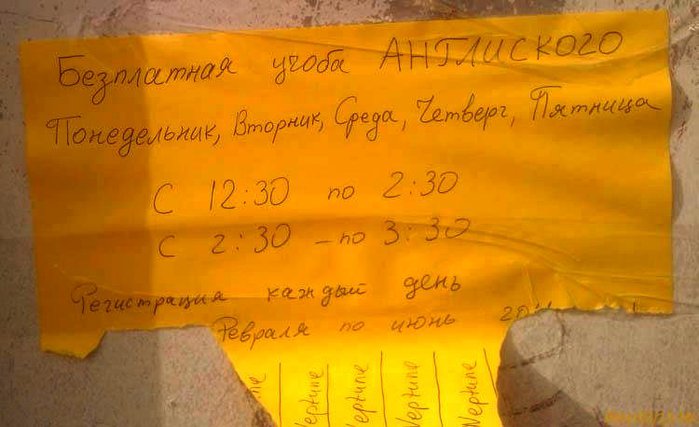 Безплатная учоба АНГЛИСКОГО
Понедельник, Вторник, Среда, Четверг, Пятница
С 12:30 по 2:30
С 2:30 – по 3:30
Регистрация каждый день
Февраля по июнь
Neptune
Neptune
Neptune
Neptune